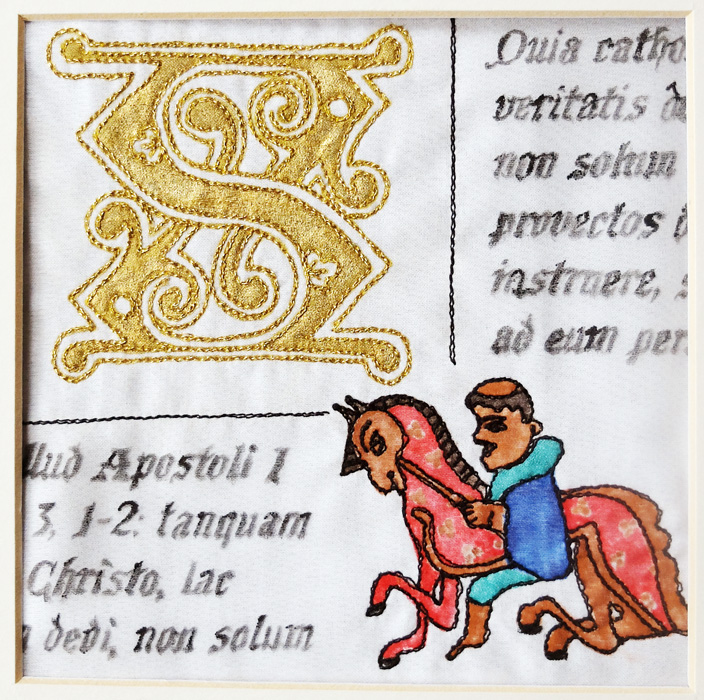 S
Quia catho
veritatis
non solum
provectos
instruere,
ad eum per
llud Apostoli I
3, 1-2: tanquam
Christo, lac
dedi, non solum